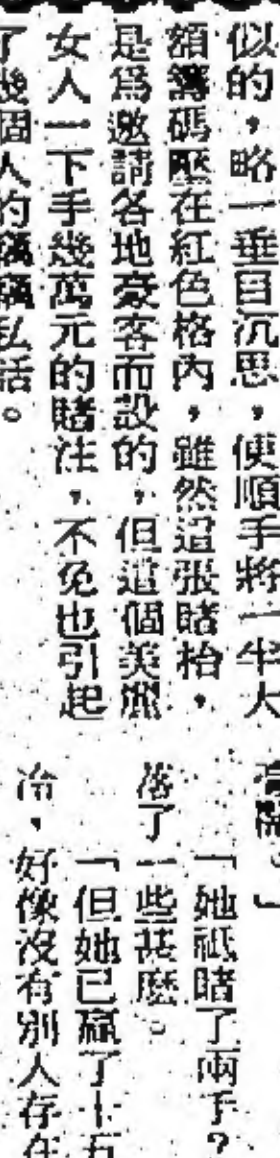 似的，略一垂目沉思，便順手將一半大
額籌碼壓在紅色格內，雖然這張賭枱，
是為邀請各地豪客而設的，但這個美麗
女人一下手幾萬元的賭注，不免也引起
了幾個人的竊竊私話。
「她祗賭了兩手？
落了一些甚麼。
「但她已贏了十五
冷，好像沒有別人存在